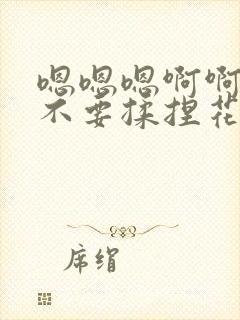 嗯嗯嗯啊啊
不要揉捏花
席绢